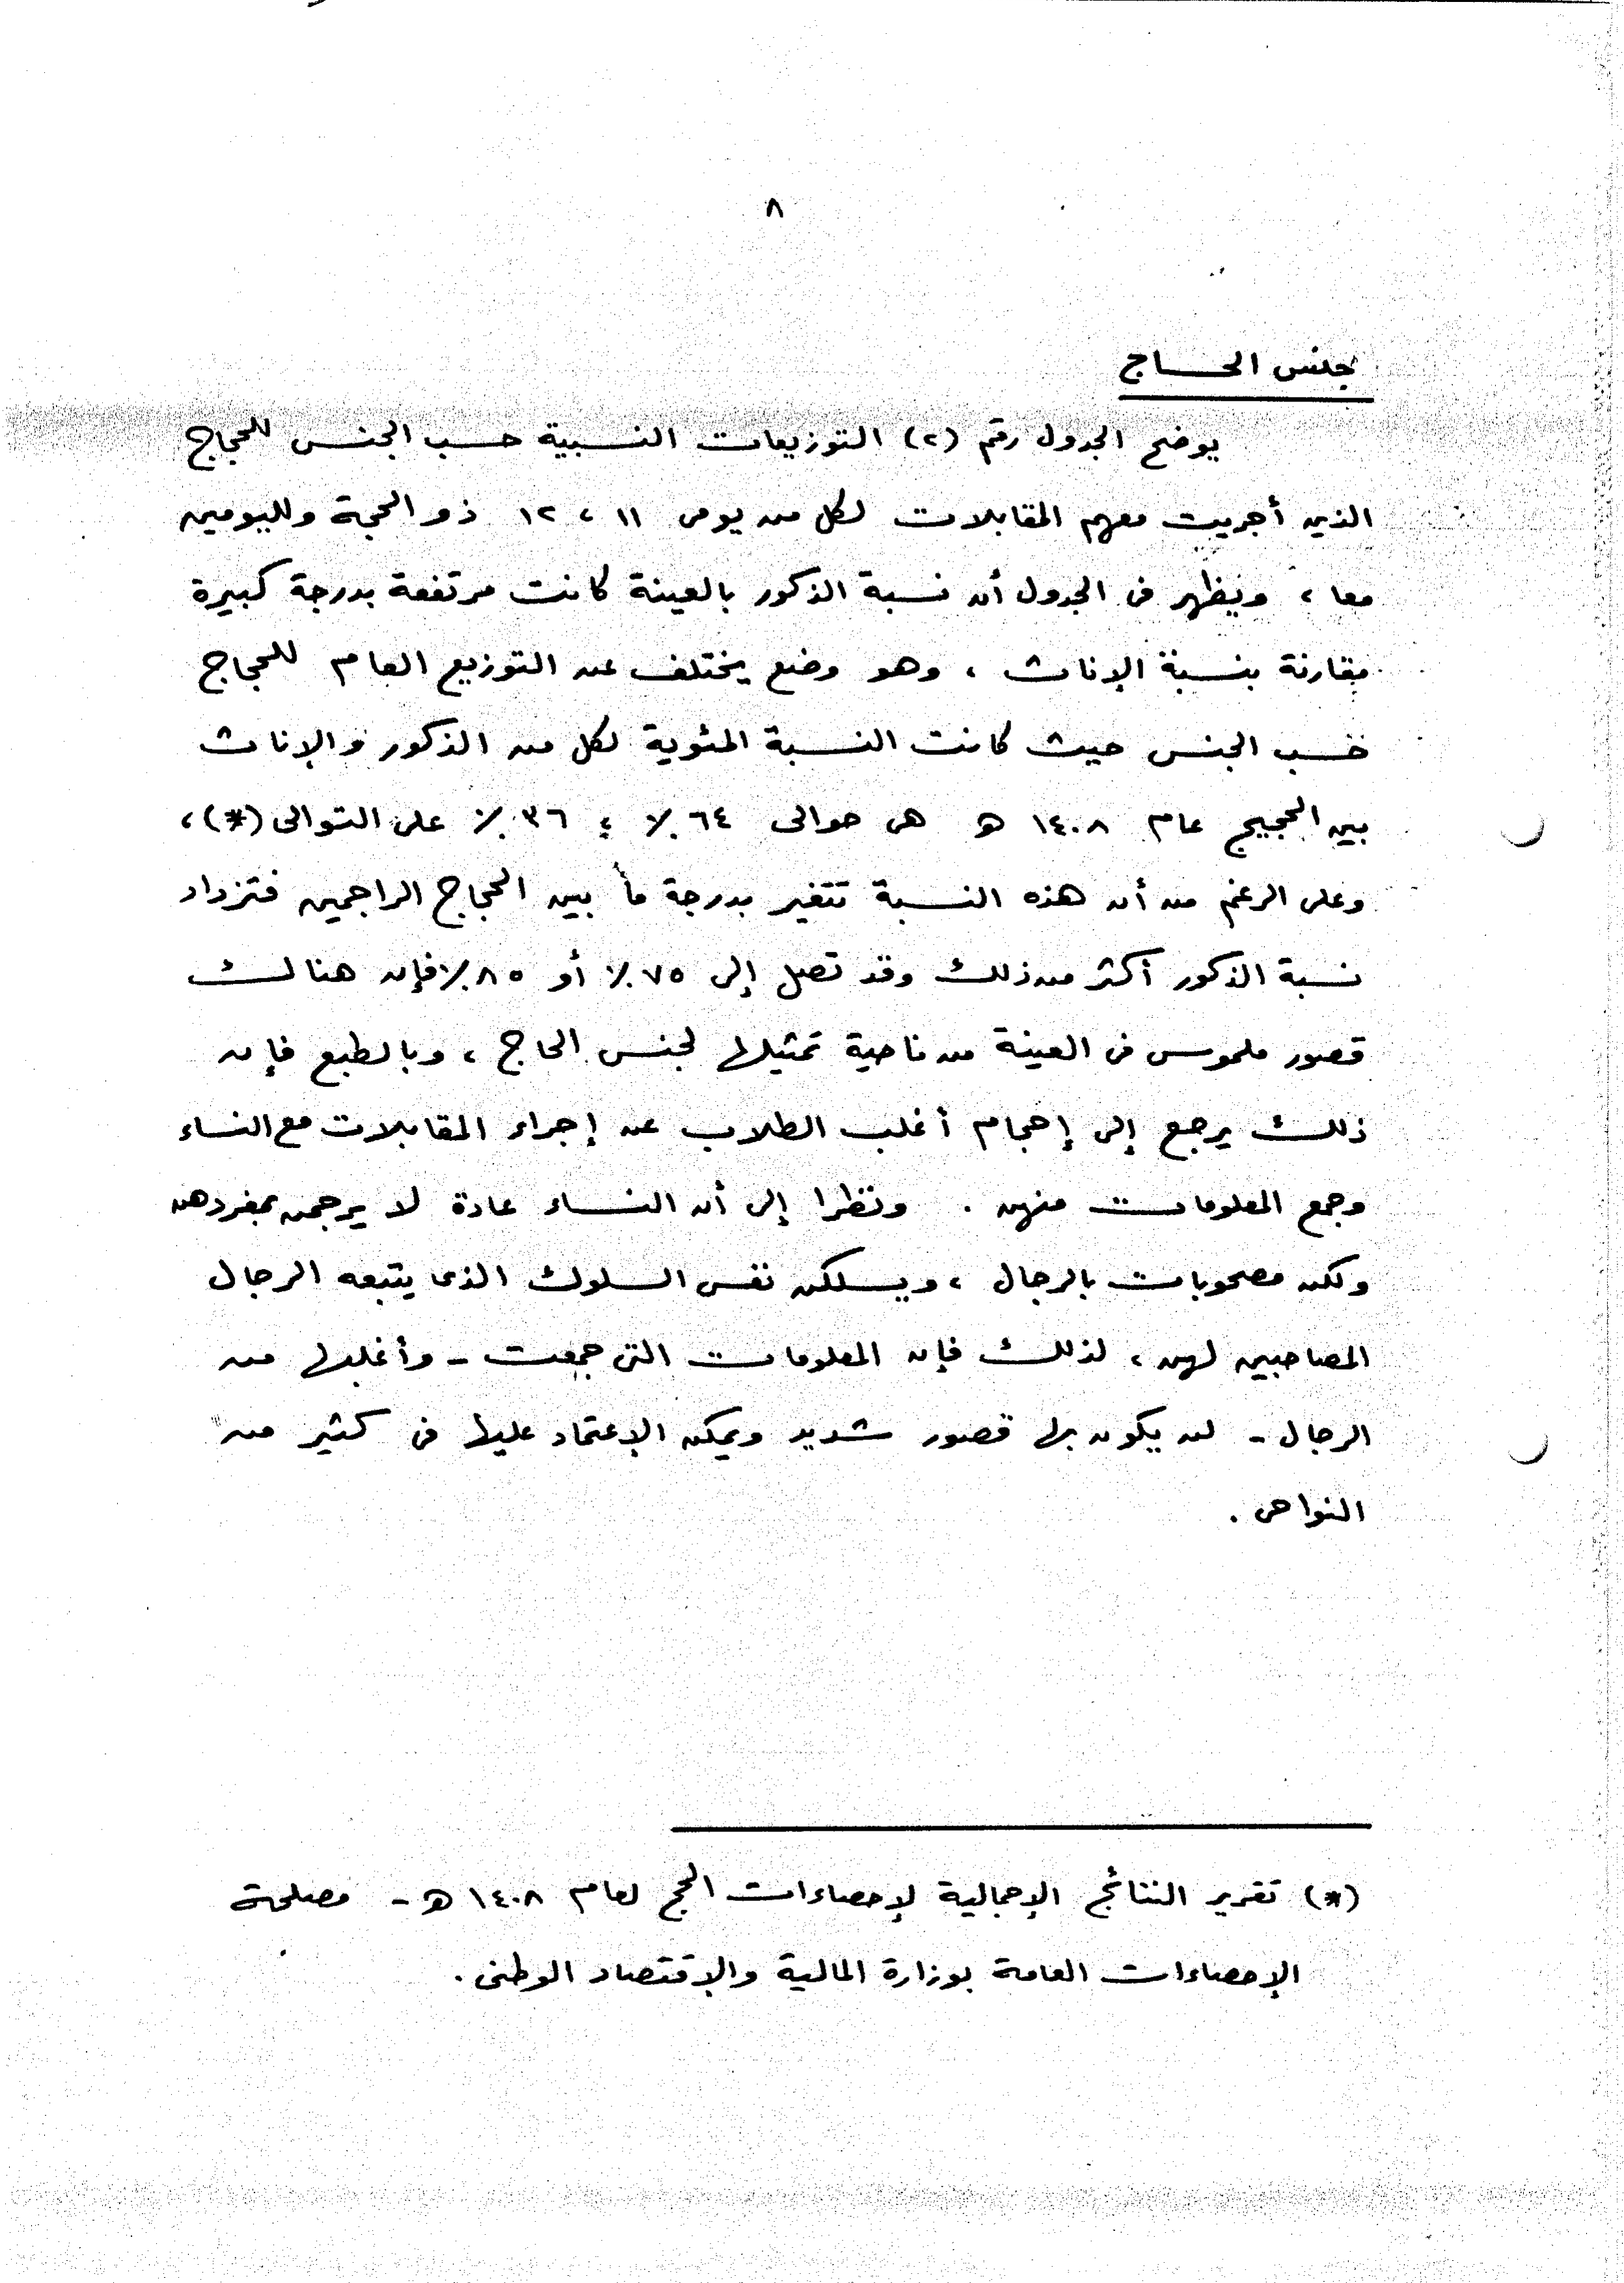 ٨
جنس الحـــاج
يوضح الجدول رقم (٢) التوزيعات النسبية حسب الجنس للحجاج
الذين أجريت معهم المقابلات لكل من يومى ١١ ، ١٢ ذو الحجة ولليومين
معا ، ويظهر فى الجدول أن نسبة الذكور بالعينة كانت مرتفعة بدرجة كبيرة
مقارنة بنسبة الإناث ، وهو وضع يختلف عن التوزيع العام للحجاج
حسب الجنس حيث كانت النسبة المئوية لكل من الذكور والإناث
بين الحجيج عام ١٤٠٨ هـ هى حوالى ٦٤ ٪ ، ٣٦ ٪ على التوالى (*) ،
وعلى الرغم من أن هذه النسبة تتغير بدرجة ما بين الحجاج الراجمين فتزداد
نسبة الذكور أكثر من ذلك وقد تصل إلى ٧٥ ٪ أو ٨٥ ٪ فإن هنالك
قصور ملموس فى العينة من ناحية تمثيلها لجنس الحاج ، وبالطبع فإن
ذلك يرجع إلى إحجام أغلب الطلاب عن إجراء المقابلات مع النساء
وجمع المعلومات منهن . ونظرا إلى أن النساء عادة لا يرجمن بمفردهن
ولكن مصحوبات بالرجال ، ويسلكن نفس السلوك الذى يتبعه الرجال
المصاحبين لهن ، لذلك فإن المعلومات التى جمعت - وأغلبها من
الرجال - لن يكون بها قصور شديد ويمكن الإعتماد عليها فى كثير من
النواحى .
(*) تقرير النتائج الإجمالية لإحصاءات الحج لعام ١٤٠٨ هـ - مصلحة
الإحصاءات العامة بوزارة المالية والإقتصاد الوطنى .